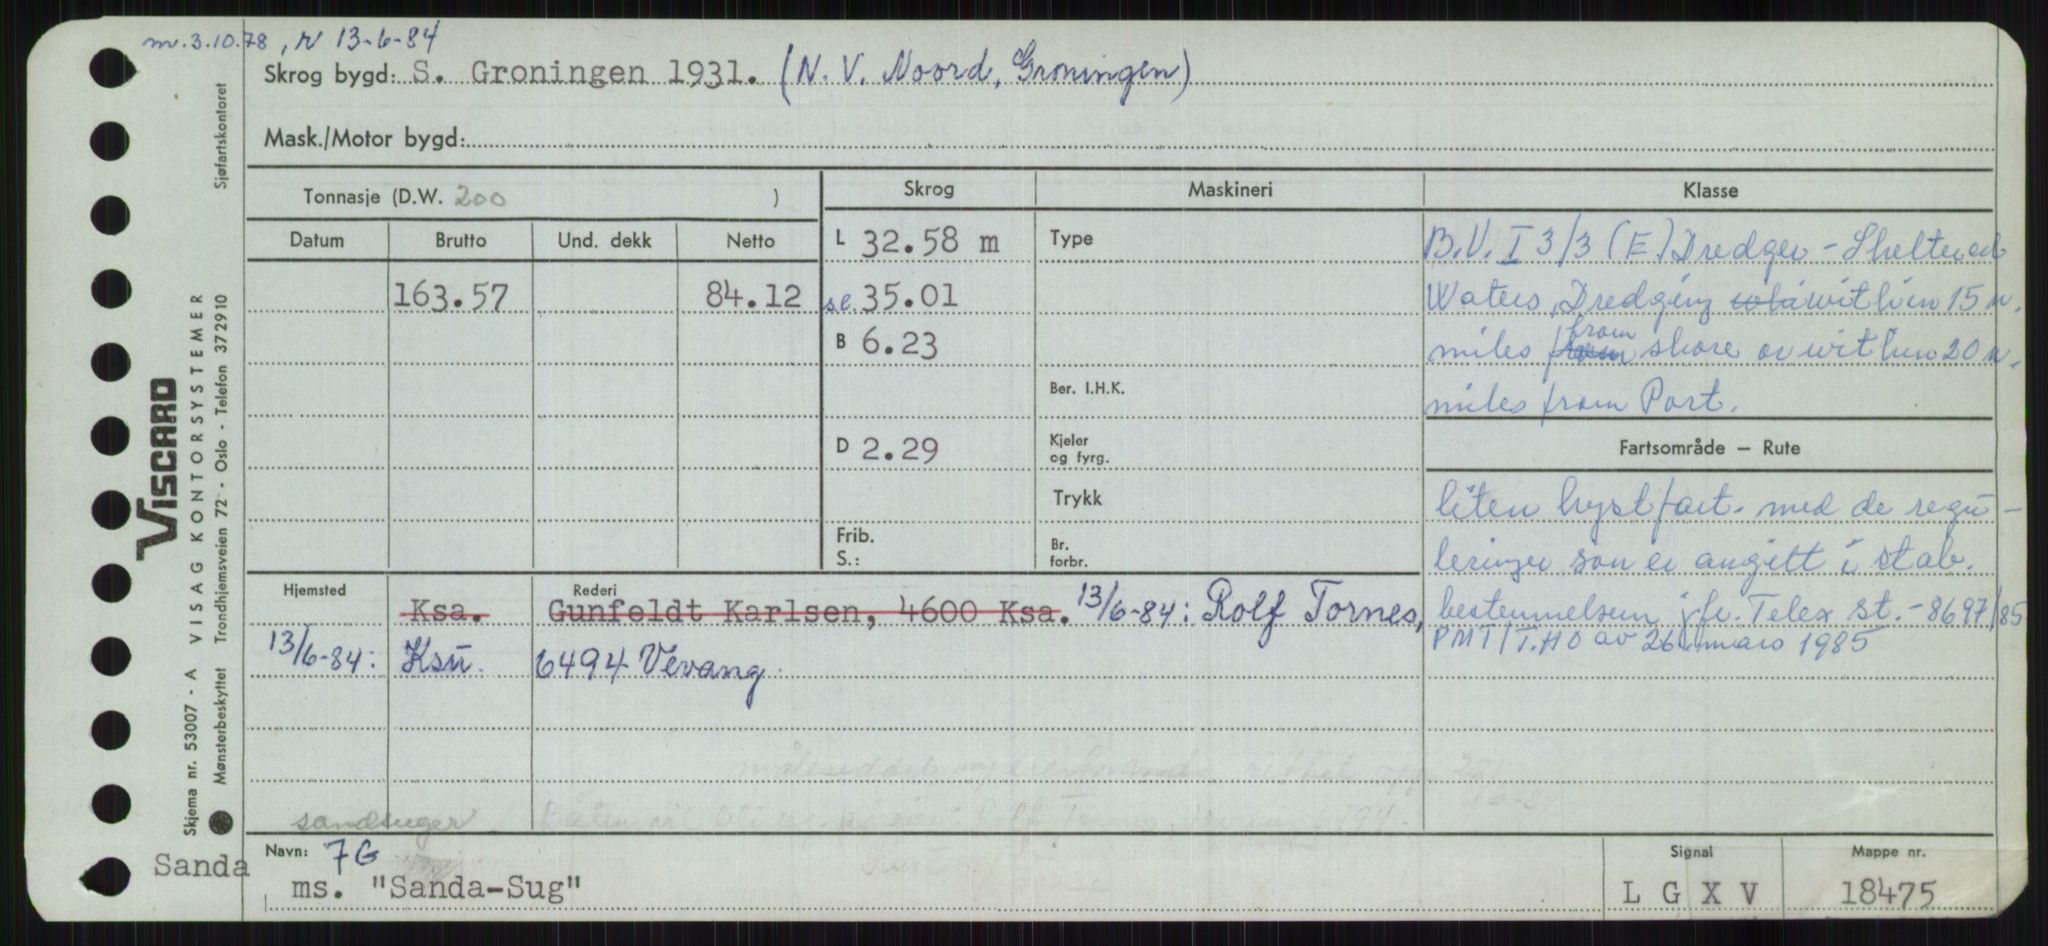 m. 3.10.78, N 13-6-84
Skrog bygd: S. Groningen 1931. (N.V. Noord, Groningen)
Mask./Motor bygd:
Tonnasje (D.W. 200 )
Skrog Maskineri Klasse
Datum Brutto Und. dekk Netto
L 32.58 m Type
B.V. I 3/3 (E) Dredger - Sheltered
163.57 84.12 se. 35.01
Waters, Dredging within 15 n.
B 6.23
miles from shore or within 20 n.
Ber. I.H.K.
miles from Port.
D 2.29 Kjeler
og fyrg.
Fartsområde — Rute
Trykk
liten kystfart. med de regu-
Frib.
S.:
Br.
forbr.
leringer som er angitt i stab.
Hjemsted Rederi
Ksa. Gunfeldt Karlsen, 4600 Ksa. 13/6-84: Rolf Tornes,
bestemmelsen jfr. Telex St. - 8697/85
13/6-84: Ksu. 6494 Vevang.
PMT/T.HO av 26. mars 1985
sandsuger
Båten vil bli Rolf Tornes, Vevang 6494.
Navn: 7G
Signal Mappe nr.
Sanda
ms. "Sanda-Sug" L G X V 18475
VISCARD
Skjema nr. 53007 - A VISAG KONTORSYSTEMER
Mønsterbeskyttet Trondhjemsveien 72 - Oslo - Telefon 37 29 10 Sjøfartskontoret